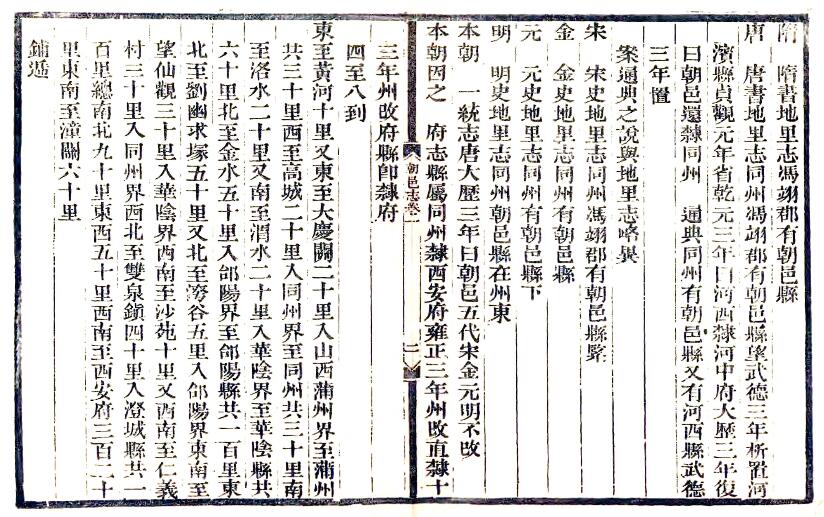 隋　隋書地里志馮翊郡有朝邑縣
唐　唐書地里志同州馮翊郡有朝邑縣望武德三年析置河
濱縣貞觀元年省乾元三年曰河西隸河中府大歷三年復
曰朝邑還隸同州　通典同州有朝邑縣又有河西縣武德
三年置
案通典之說與地里志略異
宋　宋史地里志同州馮翊郡有朝邑縣緊
金　金史地里志同州有朝邑縣
元　元史地里志同州有朝邑縣下
明　明史地里志同州朝邑縣在州東
本朝　一統志唐大歷三年曰朝邑五代宋金元明不改
本朝因之　府志縣屬同州隸西安府雍正三年州改直隸十
朝邑志卷一
二
三年州改府縣卽隸府
四至八到
東至黃河十里又東至大慶關二十里入山西蒲州界至蒲州
共三十里西至高城二十里入同州界至同州共三十里南
至洛水二十里又南至渭水二十里入華陰界至華陰縣共
六十里北至金水五十里入郃陽界至郃陽縣共一百里東
北至劉幽求塚五十里又北至滂谷五里入郃陽界東南至
望仙觀三十里入華陰界西南至沙苑十里又西南至仁義
村三十里入同州界西北至雙泉鎮四十里入澄城縣共一
百里總南北九十里東西五十里西南至西安府三百二十
里東南至潼關六十里
鋪遞